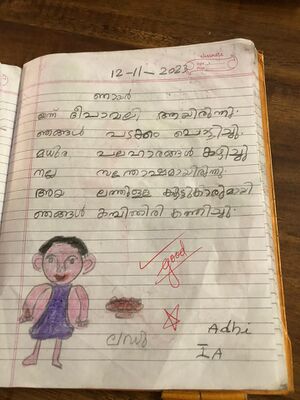 12-11-2023
ഞായർ
ഇന്ന് ദീപാവലി ആയിരുന്നു.
ഞങ്ങൾ പടക്കം പൊട്ടിച്ചു
മധുര പലഹാരങ്ങൾ കഴിച്ചു
നല്ല സന്തോഷമായിരുന്നു.
കൂട്ടുകാരുമായി
ഞങ്ങൾ കമ്പിത്തിരി കത്തിച്ചു.
good
ലഡു
Adhi
I A